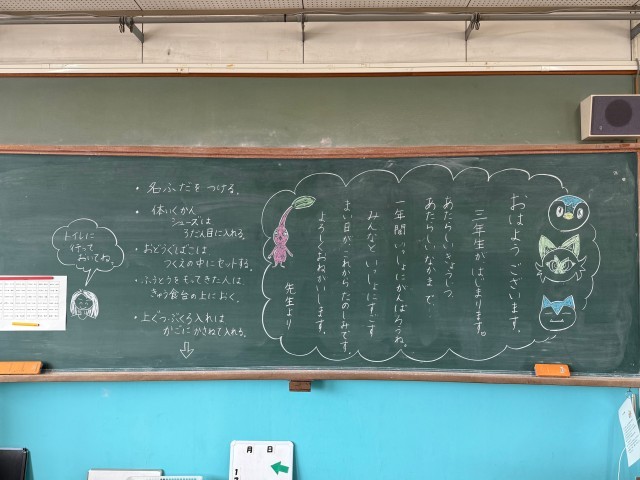 おはようございます。
三年生がはじまります。
あたらしいきょうしつ、
あたらしいなかまで、
一年間いっしょにがんばろうね。
みんなといっしょにすごす
まい日が、これからたのしみです。
よろしくおねがいします。
先生より
・名ふだをつける。
・体いくかん
シューズは
3だん目に入れる。
・おどうぐばこは
つくえの中にセットする。
・ふうとうをもってきた人は
きゅう食台の上におく。
・上ぐつぶくろ入れは
かごにかさねて入れる。
トイレに
行って
おいてね。
月 日